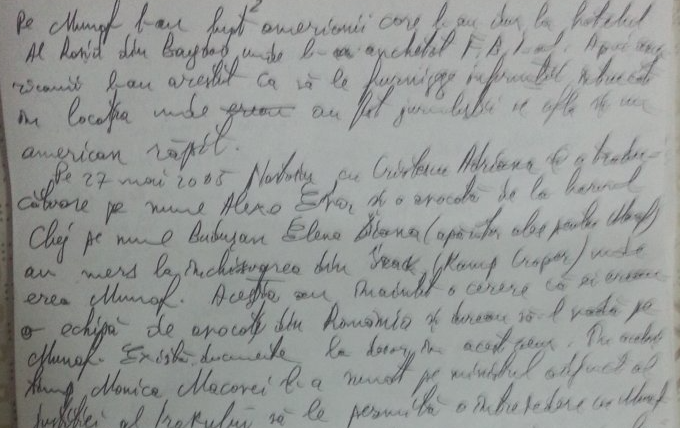 Pe Munaf l-au luat americanii care l-au dus la hotelul
Al Rashid din Bagdad unde l-a anchetat F.B.I.-ul. Apoi ame-
ricanii l-au arestat ca să le furnizeze informații întrucât
în locația unde erau au fost jurnaliștii se afla și un
american răpit.
Pe 27 mai 2005 cu Cristescu Adriana o tradu-
cătoare pe nume Alexe și o avocată de la baroul
Cluj pe nume Budușan Elena Diana (apărător ales pentru Munaf)
au mers la închisoarea din Irak (Kamp Croper) unde
erea Munaf. Aceștia au înaintat o cerere că ei erau
o echipă de avocați din România și vreau să-l vadă pe
Munaf. Există documente la dosar în acest sens. În același
timp Monica Macovei l-a sunat pe ministrul adjunct al
justiției al Irakului să le permită o întrevedere cu Munaf